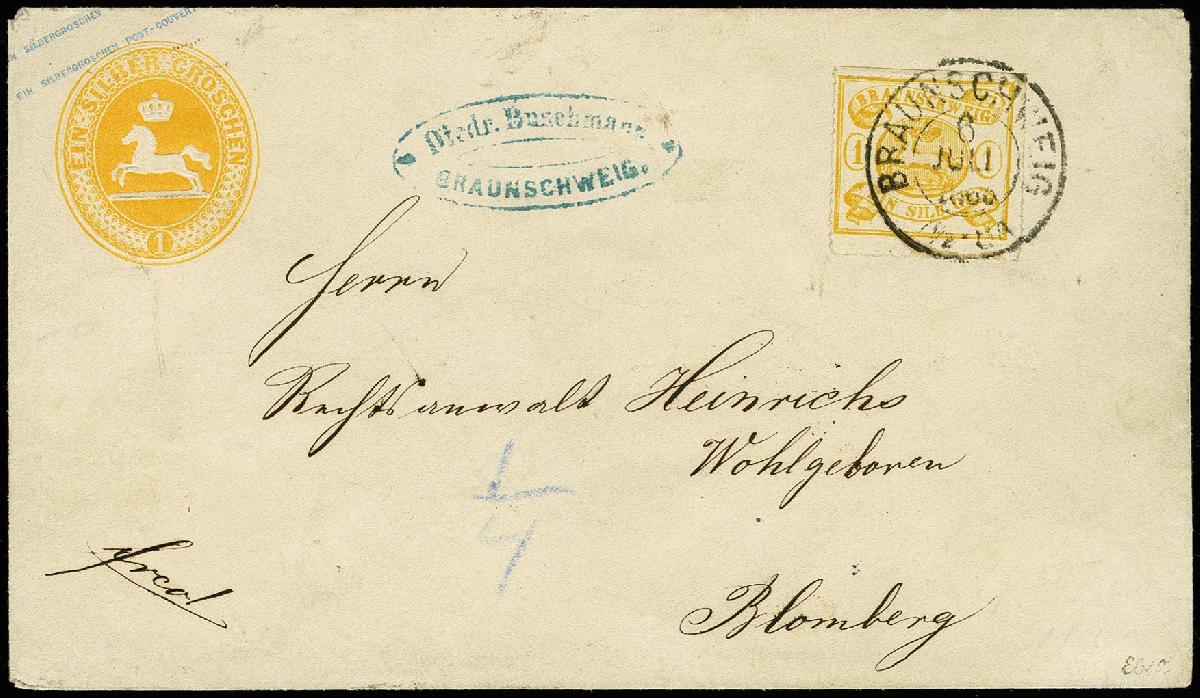 EIN SILBERGROSCHEN
EIN SILBERGROSCHEN POST-COUVERT
EIN·SILBER·GROSCHEN
1
Diedr. Buschmann
BRAUNSCHWEIG.
BRAUNSCHWEIG
1 1
SILB
BRAUNSCHWEIG
6
JUNI
Herrn
Rechtsanwalt Heinrichs
Wohlgeboren
frco!
1/4
Blomberg